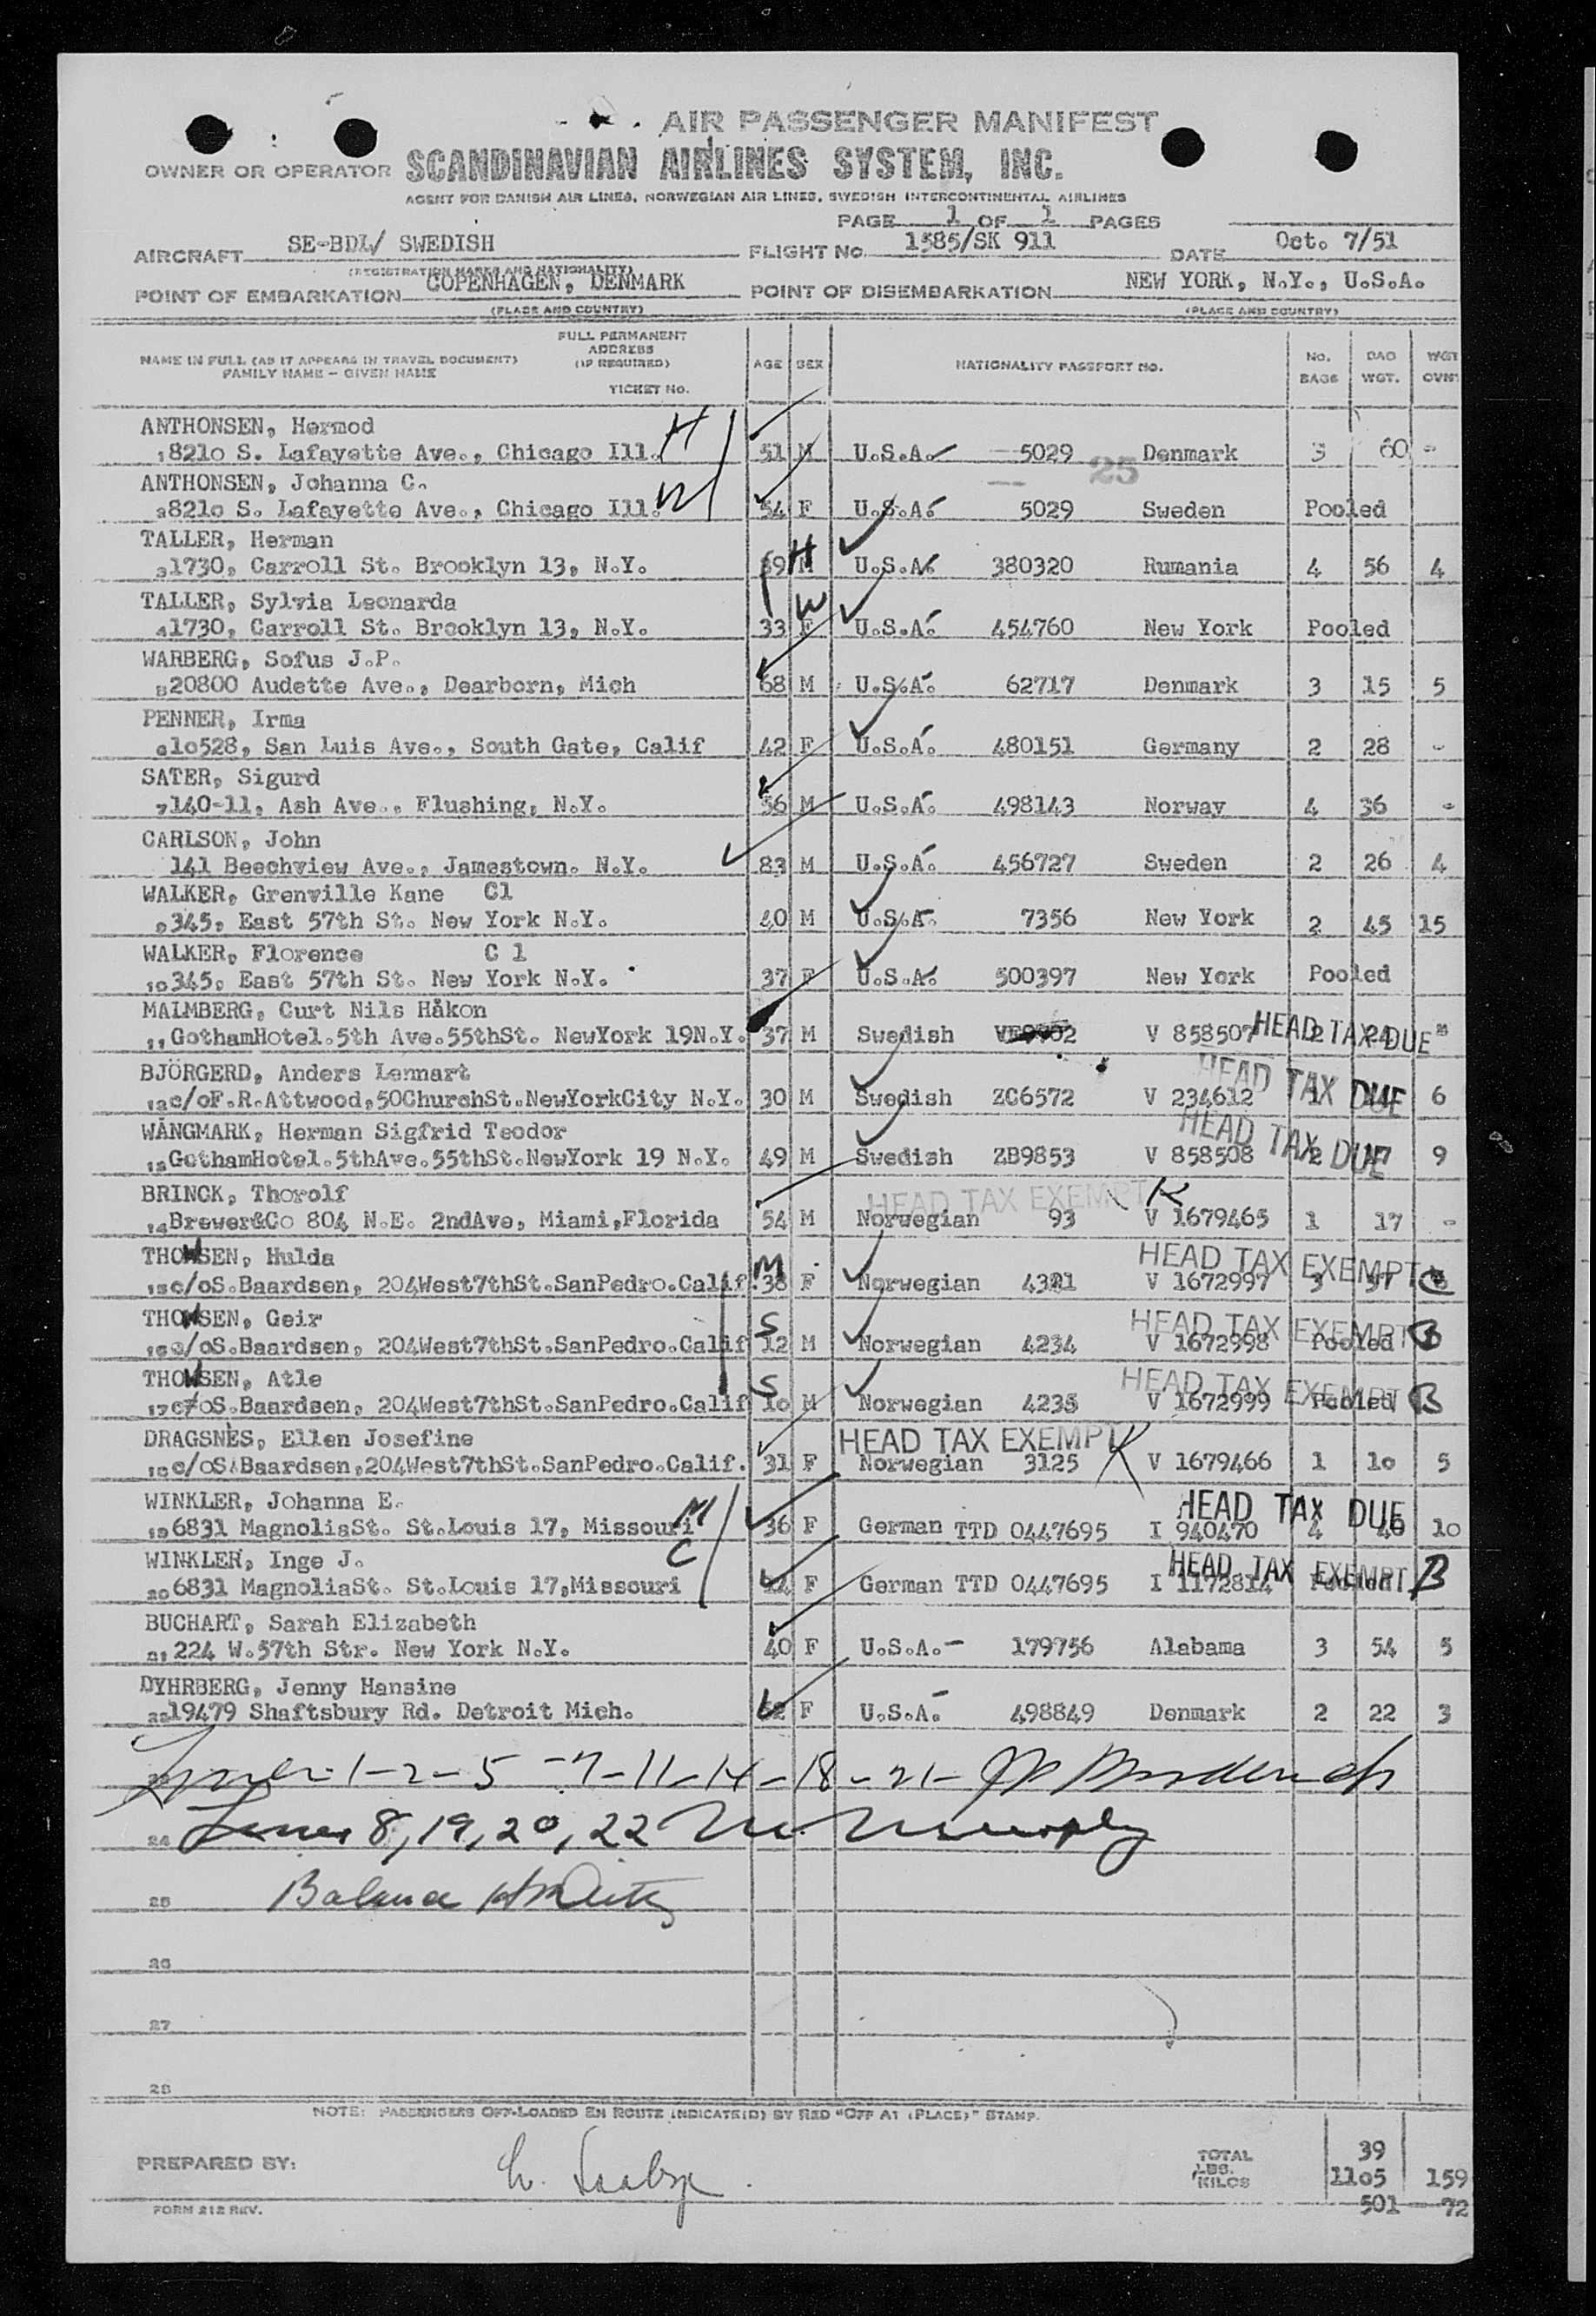 AIR PASSENGER MANIFEST
OWNER OR OPERATOR SCANDINAVIAN AIRLINES SYSTEM, INC.
AGENT FOR DANISH AIR LINES, NORWEGIAN AIR LINES, SWEDISH INTERCONTINENTAL AIRLINES
PAGE 1 OF 1 PAGES
AIRCRAFT SE-BDL/ SWEDISH FLIGHT No. 1585/SK 911 DATE Oct. 7/51
(REGISTRATION MARKS AND NATIONALITY)
POINT OF EMBARKATION COPENHAGEN, DENMARK POINT OF DISEMBARKATION NEW YORK, N.Y., U.S.A.
(PLACE AND COUNTRY) (PLACE AND COUNTRY)
NAME IN FULL (AS IT APPEARS IN TRAVEL DOCUMENT) FAMILY NAME – GIVEN NAME FULL PERMANENT ADDRESS (IF REQUIRED) TICKET No. AGE SEX NATIONALITY PASSPORT NO. No. BAGS BAG WGT. WGT OVR
ANTHONSEN, Hermod H
1 8210 S. Lafayette Ave., Chicago Ill. 51 M U.S.A. 5029 Denmark 3 60 -
25
ANTHONSEN, Johanna C. W
2 8210 S. Lafayette Ave., Chicago Ill. 54 F U.S.A. 5029 Sweden Pooled
TALLER, Herman H
3 1730, Carroll St. Brooklyn 13, N.Y. M U.S.A. 380320 Rumania 4 56 4
TALLER, Sylvia Leonarda W
4 1730, Carroll St. Brooklyn 13, N.Y. 33 F U.S.A. 454760 New York Pooled
WARBERG, Sofus J.P.
5 20800 Audette Ave., Dearborn, Mich 68 M U.S.A. 62717 Denmark 3 15 5
PENNER, Irma
6 10528, San Luis Ave., South Gate, Calif 42 F U.S.A. 480151 Germany 2 28 -
SATER, Sigurd
7 140-11, Ash Ave., Flushing, N.Y. 56 M U.S.A. 498143 Norway 4 36 -
CARLSON, John
141 Beechview Ave., Jamestown. N.Y. 83 M U.S.A. 456727 Sweden 2 26 4
WALKER, Grenville Kane Cl
9 345, East 57th St. New York N.Y. 40 M U.S.A. 7356 New York 2 45 15
WALKER, Florence C l
10 345, East 57th St. New York N.Y. 37 F U.S.A. 500397 New York Pooled
MALMBERG, Curt Nils Håkon
11 GothamHotel.5th Ave.55thSt. NewYork 19N.Y. 37 M Swedish V 858507 HEAD TAX DUE 2 24 -
BJÖRGERD, Anders Lennart
12 c/oF.R.Attwood,50ChurchSt.NewYorkCity N.Y. 30 M Swedish ZC6572 V 234612 HEAD TAX DUE 6
WÅNGMARK, Herman Sigfrid Teodor
13 GothamHotel.5thAve.55thSt.NewYork 19 N.Y. 49 M Swedish ZB9853 V 858508 HEAD TAX DUE 2 17 9
BRINCK, Thorolf HEAD TAX EXEMPT K
14 Brewer&Co 804 N.E. 2ndAve, Miami,Florida 54 M Norwegian 93 V 1679465 1 17 -
THOMSEN, Hulda M HEAD TAX EXEMPT
15 c/oS.Baardsen, 204West7thSt.SanPedro.Calif. 38 F Norwegian 4321 V 1672997 3
THOMSEN, Geir S HEAD TAX EXEMPT B
16 c/oS.Baardsen, 204West7thSt.SanPedro.Calif 12 M Norwegian 4234 V 1672998 Pooled
THOMSEN, Atle S HEAD TAX EXEMPT B
17 c/oS.Baardsen, 204West7thSt.SanPedro.Calif 10 M Norwegian 4235 V 1672999 Pooled
DRAGSNES, Ellen Josefine HEAD TAX EXEMPT K
18 c/oS.Baardsen,204West7thSt.SanPedro.Calif. 31 F Norwegian 3125 V 1679466 1 10 5
WINKLER, Johanna E. M HEAD TAX DUE
19 6831 MagnoliaSt. St.Louis 17, Missouri 36 F German TTD 0447695 I 940470 4 46 10
WINKLER, Inge J. C HEAD TAX EXEMPT B
20 6831 MagnoliaSt. St.Louis 17,Missouri F German TTD 0447695 I 1172814 Pooled
BUCHART, Sarah Elizabeth
21 224 W.57th Str. New York N.Y. 40 F U.S.A. 179756 Alabama 3 54 5
DYHRBERG, Jenny Hansine
22 19479 Shaftsbury Rd. Detroit Mich. 52 F U.S.A. 498849 Denmark 2 22 3
1-2-5-7-11-14-18-21-
24 Lines 8,19,20,22
25 Balance
26
27
28
NOTE: PASSENGERS OFF-LOADED EN ROUTE INDICATE(D) BY RED "OFF AT (PLACE)" STAMP.
PREPARED BY: TOTAL 39
LBS. 1105 159
KILOS 501 72
FORM 212 REV.